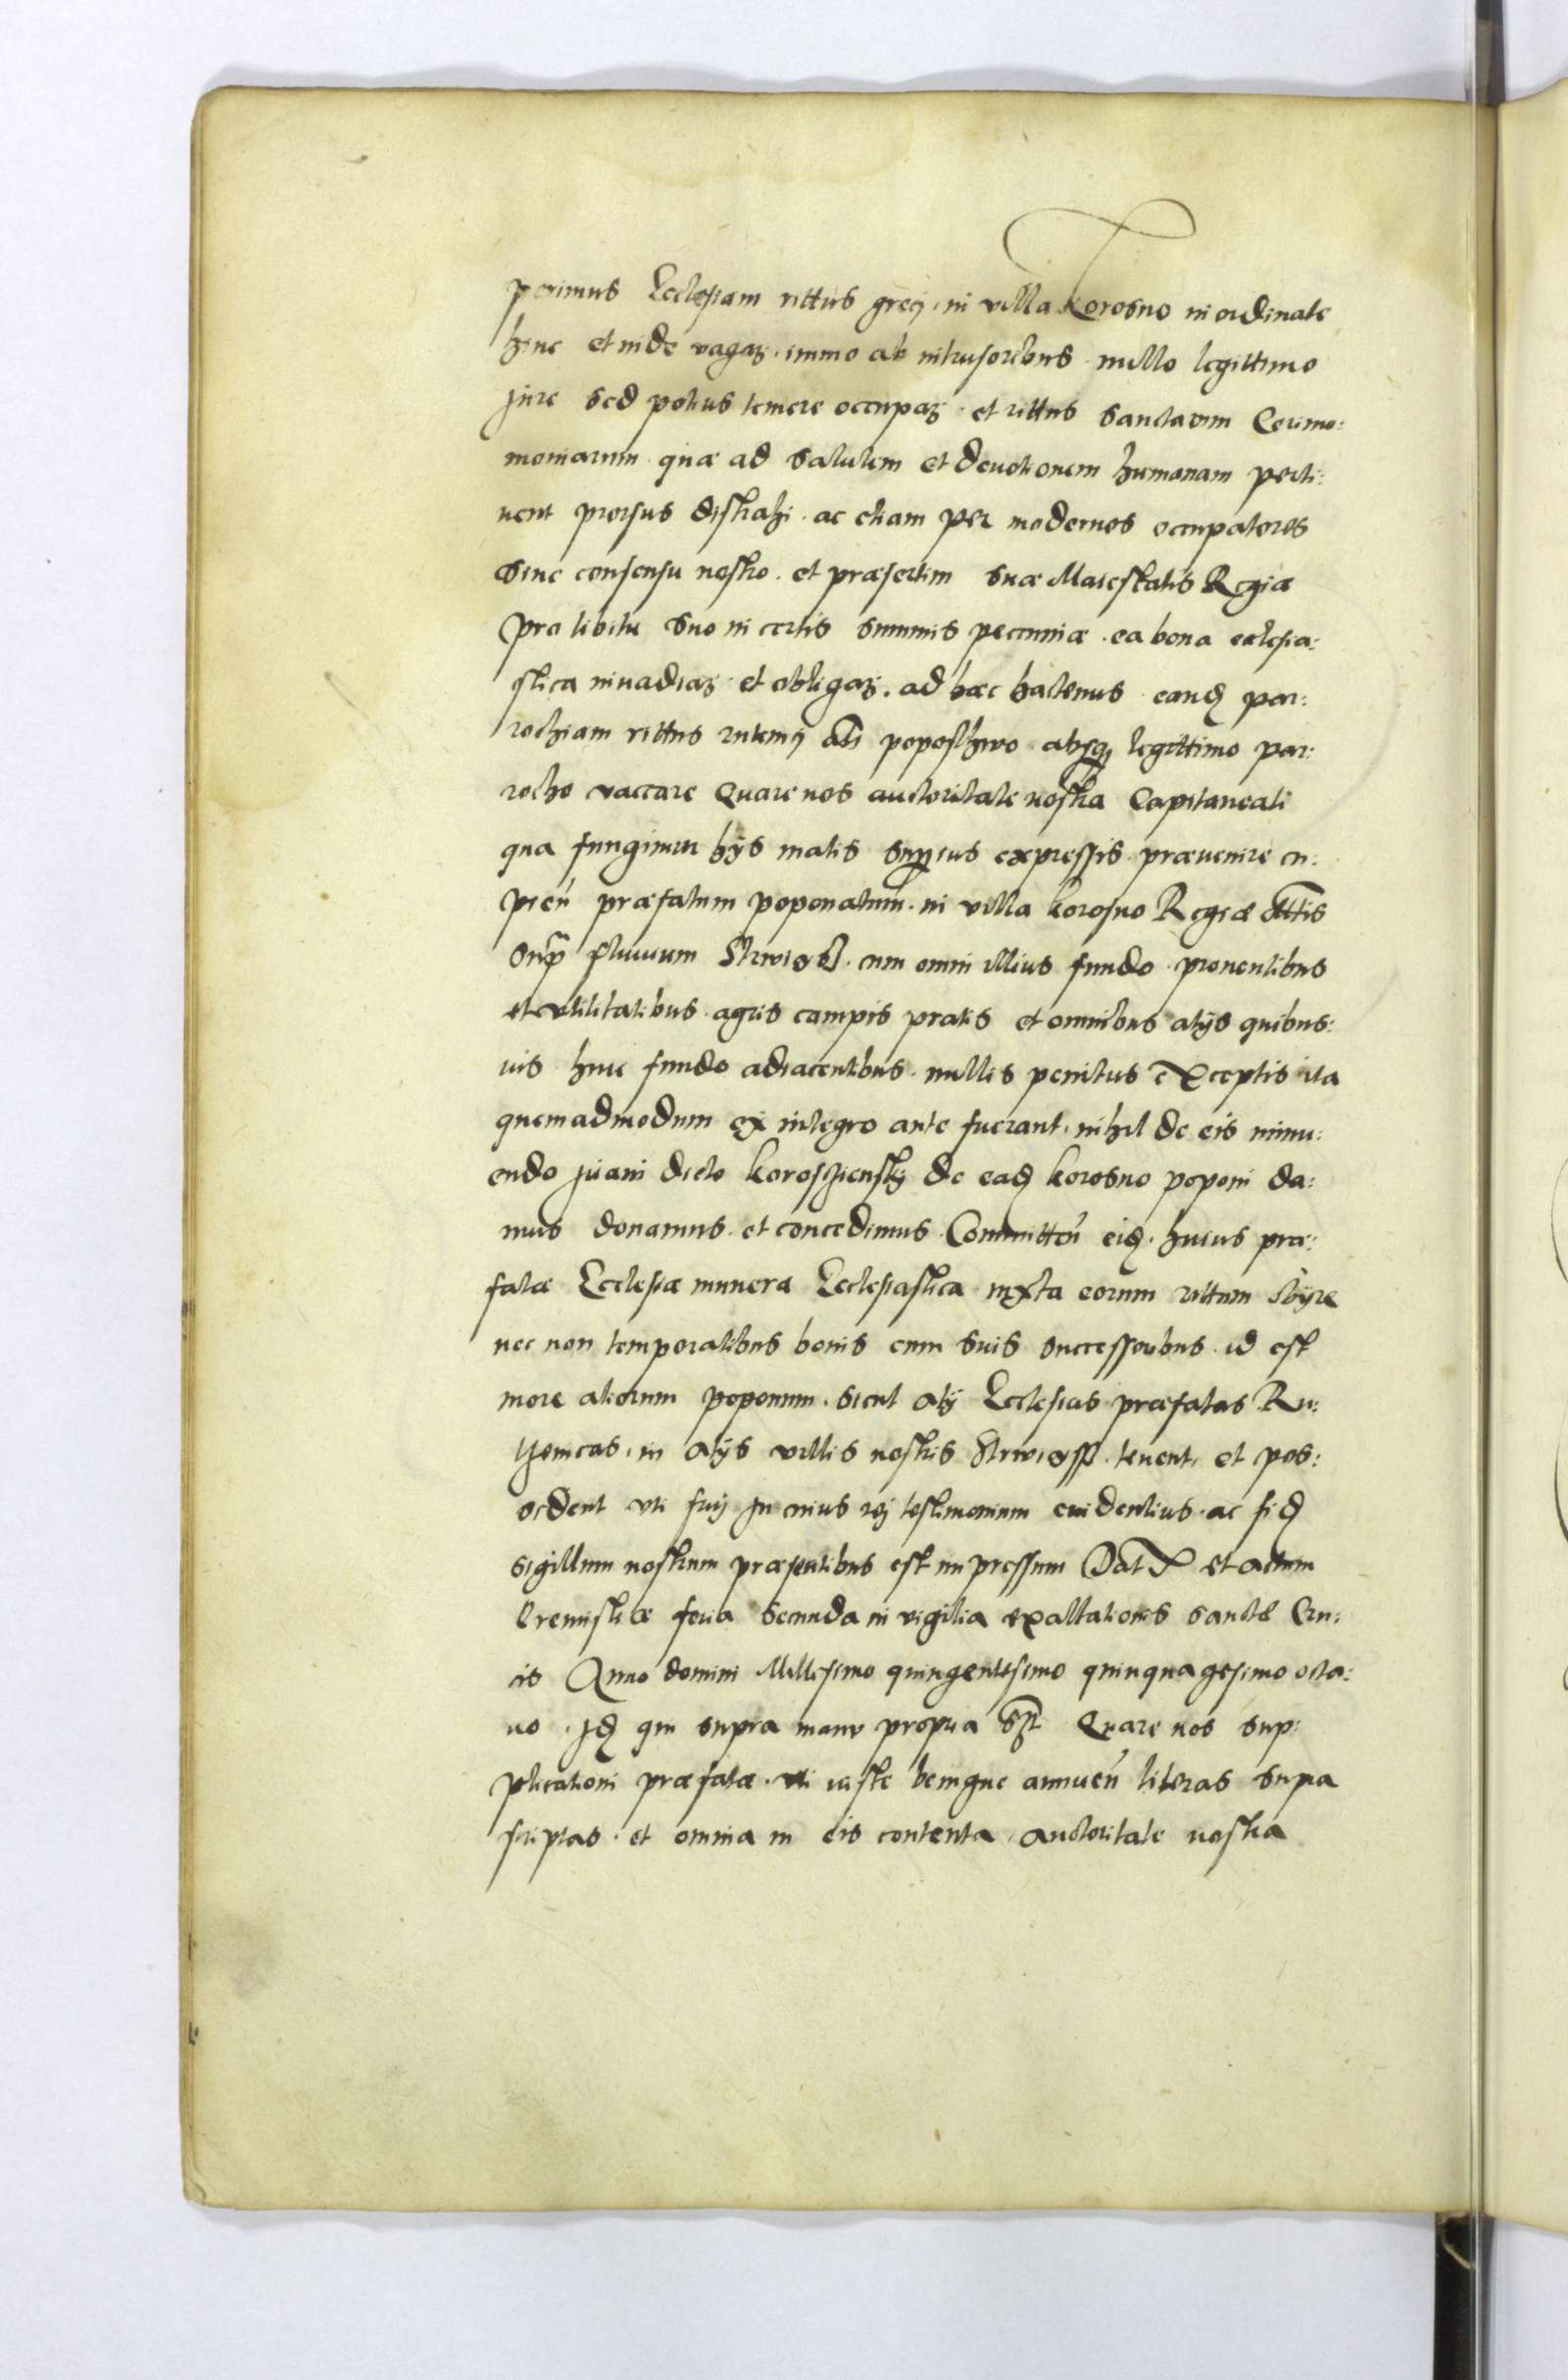 perimus Ecclesiam rittus greci, in villa Korosno inordinate
hinc et inde vagaȝ. immo ab intrusoribus nullo legittimo
jure sed potius temere occupaȝ. et rittus sanctarum Cerimo:
moniarum quæ ad salutem et deuotionem humanam perti:
nent prorsus distrahi. ac etiam per modernos occupatores
sine consensu nostro. et præsertim suæ Maiestatis Regiæ
pro libitu suo in certis summis pecuniæ. ea bona ecclesia:
stica inuadiaȝ et obligaȝ. ad hæc hactenus eandꝫ par:
rochiam rittus rutenij als poposthwo absqꝫ legittimo par:
rocho vaccare Quare nos auctoritate nostra Capitaneali
qua fungimur hijs malis superius expressis præuenire cu:
pien̄ præfatum poponatum. in villa Korosno Regiæ Mttis
sup̄ fluuium Strwiąż. cum omni illius fundo prouentibus
et vtilitatibus agris campis pratis et omnibus alijs quibus:
uis huic fundo adiacentibus. nullis penitus exceptis ita
quemadmodum ex integro ante fuerant, nihil de eis minu:
endo juani dicto Koroszienskij de eadꝫ Korosno poponi da:
mus donamus et concedimus Committen̄ eidꝫ. huius præ:
fatæ Ecclesiæ munera Ecclesiastica iuxta eorum rittum
nec non temporalibus bonis cum suis successoribus id est
more aliorum poponum. sicut alij Ecclesias præfatas Ru:
thenicas, in alijs villis nostris tenent, et pos:
sident vti frui Jn cuius rei testimonium euidentius ac fidꝫ
sigillum nostrum præsentibus est impressum Dat et actum
Premisliæ feria secunda in vigilia exaltationis sanctæ Cru:
cis Anno domini Millesimo quingentesimo quinquagesimo octa:
uo. jdꝫ qui supra manu propria sst Quare nos sup:
plicationi præfatæ. vti iustæ benigne annuen̄ literas supra
scriptas. et omnia in eis contenta auctoritate nostra